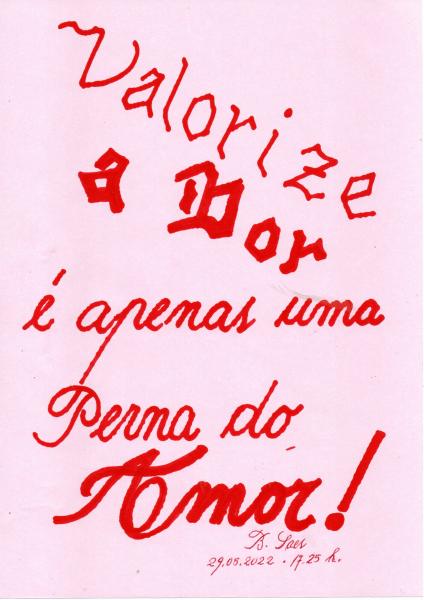 Valorize
a Dor
é apenas uma
Perna do
Amor!
D. Saes
29.05.2022 • 17.25 h.